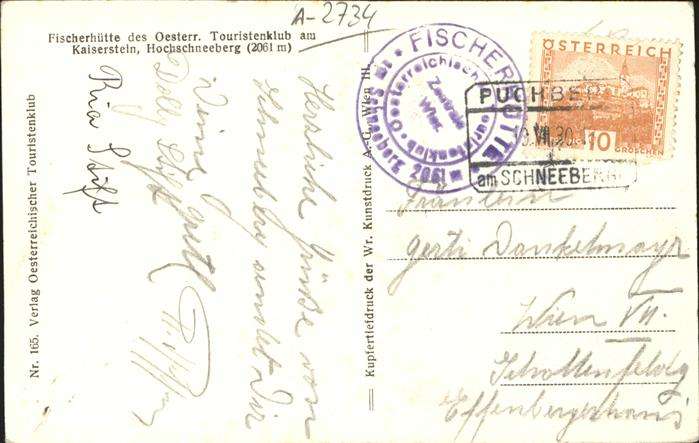 A-2734
Fischerhütte des Oesterr. Touristenklub am
Kaiserstein, Hochschneeberg (2061 m)
Nr. 165. Verlag Oesterreichischer Touristenklub
Herzliche Grüße vom
Schneeberg sendet Dir
Deine Gretl
Dolly Stift
Ria Stift
Kupfertiefdruck der Wr. Kunstdruck A.-G., Wien III.
FISCHERHÜTTE
2061 m
Zentrale
Wien
ÖSTERREICH
10
GROSCHEN
PUCHBERG
VII.30
am SCHNEEBERG
Fräulein
Gerti Dankelmayr
Wien VII.
Schottenfeldg
Effenbergerhaus